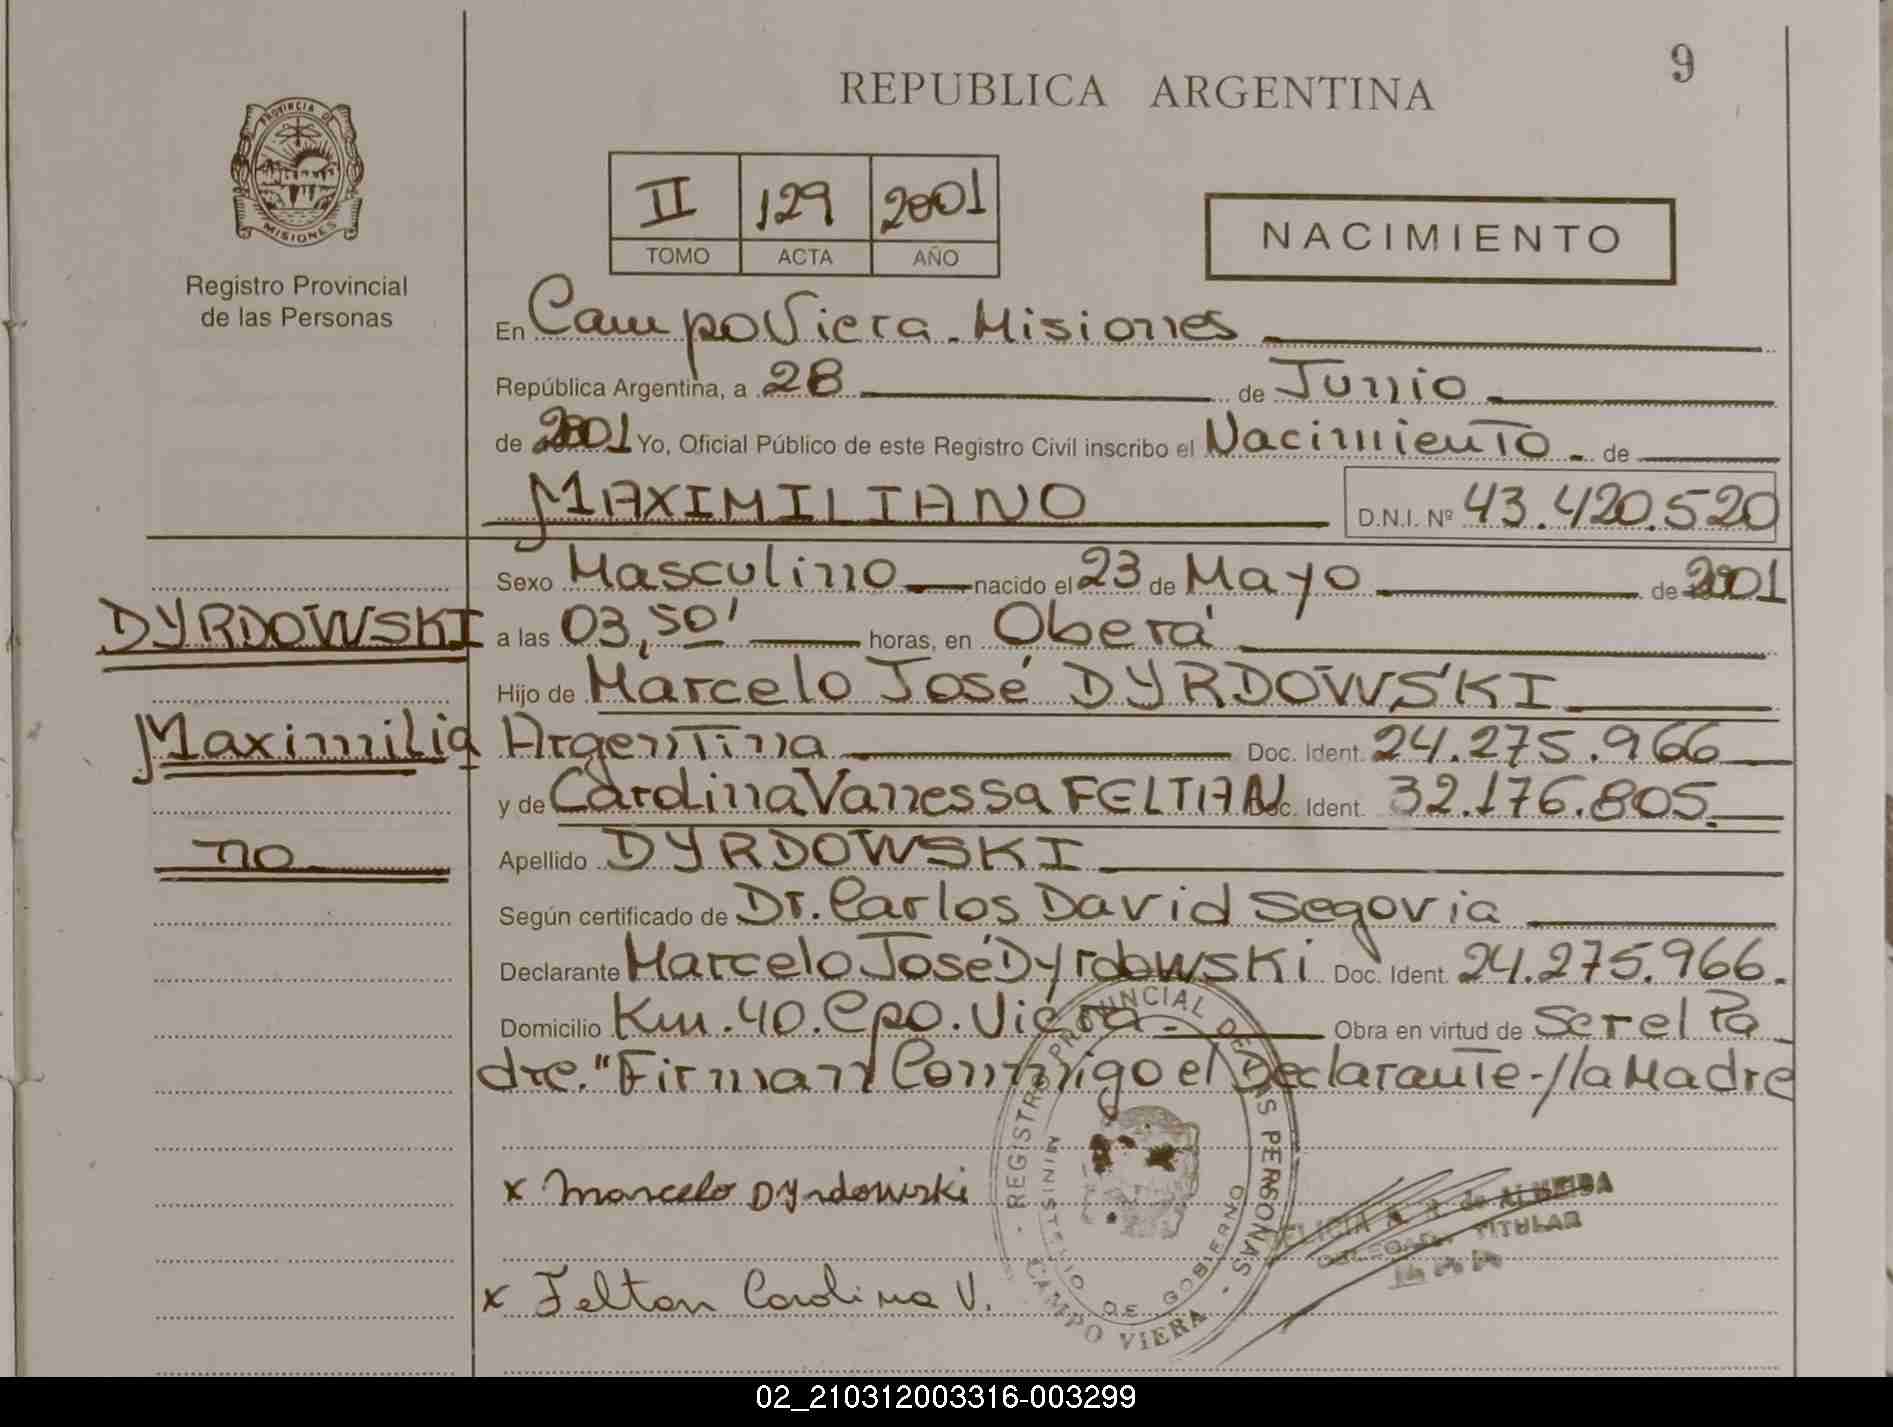 9
REPUBLICA ARGENTINA
PROVINCIA DE
MISIONES
Registro Provincial
de las Personas
II 129 2001
TOMO ACTA AÑO
NACIMIENTO
En Campo Viera - Misiones
República Argentina, a 28 de Junio
de 2001 Yo, Oficial Público de este Registro Civil inscribo el Nacimiento - de
MAXIMILIANO D.N.I. Nº 43.420.520
Sexo Masculino nacido el 23 de Mayo de 2001
DYRDOWSKI a las 03,50' horas, en Oberá
Hijo de Marcelo José DYRDOWSKI
Maximilia Argentina Doc. Ident. 24.275.966
y de Carolina Vanessa FELTAN Doc. Ident. 32.176.805.
no Apellido DYRDOWSKI
Según certificado de Dr. Carlos David Segovia
Declarante Marcelo José Dyrdowski Doc. Ident. 24.275.966.
Domicilio Km. 40. Cpo. Viera - Obra en virtud de ser el Pa
dre." Firman Conmigo el Declarante-//la Madre
x Marcelo Dyrdowski
x Feltan Carolina V.
REGISTRO PROVINCIAL DE LAS PERSONAS
MINISTERIO DE GOBIERNO
CAMPO VIERA
de ALMEIDA
TITULAR
02_210312003316-003299